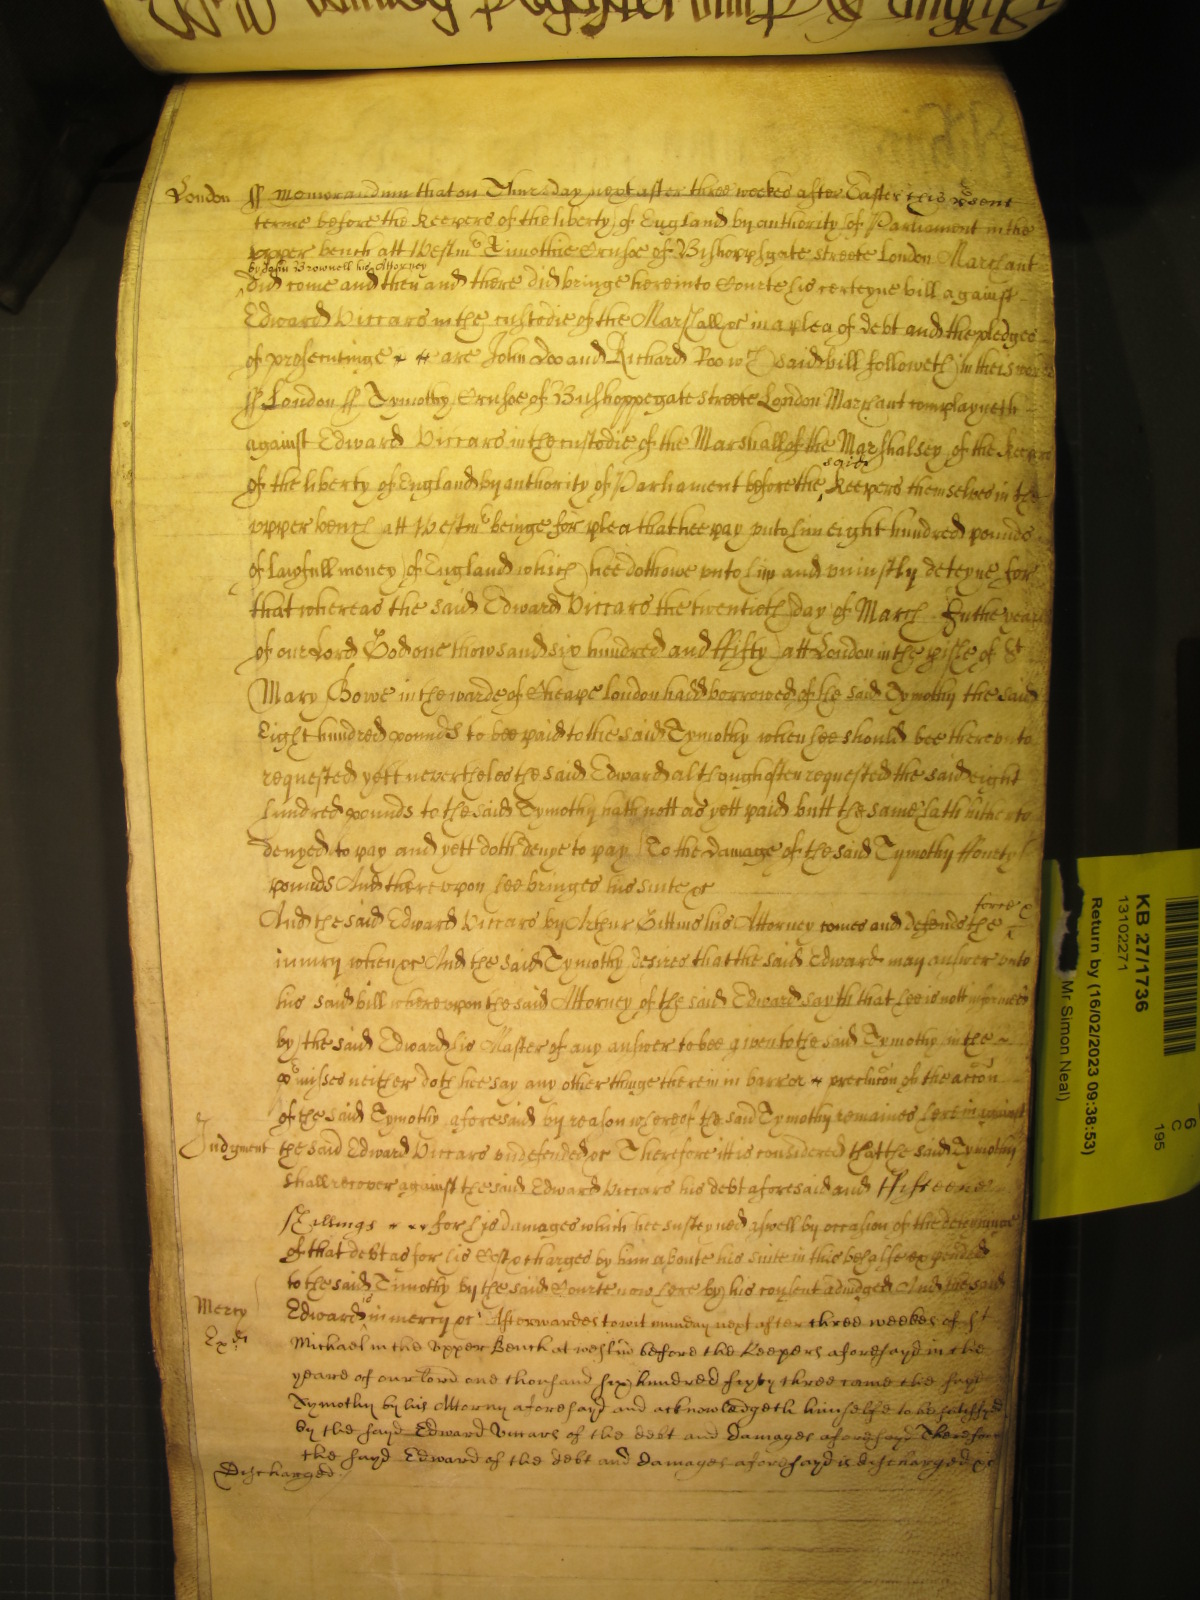 London ss Memorandum that on Thursday next after three weekes after Easter this psent
terme before the Keepers of the liberty of England by authority of Parliament in the
upper bench att Westmr Timothie Crusoe of Bishoppsgate streete London Marchant
by John Brownell his Attorney
did come and then and there did bringe here into Courte his certeyne bill against
Edward Viccars in the custodie of the Marshall &c in a plea of debt and the pledges
of prosecutinge are John Doo and Richard Roo wch said bill followeth in theis wordes
ss London ss Tymothy Crusoe of Bishoppegate streete London Marchant complayneth
against Edward Viccars in the custodie of the Marshall of the Marshalsey of the Keepers
said
of the liberty of England by authority of Parliament before the Keepers themselves in the
upper bench att Westmr beinge for plea that hee pay unto him eight hundred pounds
of lawfull money of England which hee doth owe unto him and uniustly deteyne for
that whereas the said Edward Viccars the twentieth day of March In the yeare
of our Lord God one thowsand six hundred and ffifty att London in the pishe of St
Mary Bowe in the warde of Cheape London hadd borrowed of the said Tymothy the said
Eight hundred pounds to bee paid to the said Tymothy when hee should bee thereunto
requested yett neverthelesse the said Edward although often requested the said eight
hundred pounds to the said Tymothy hath nott as yett paid butt the same hath hitherto
denyed to pay and yett doth denye to pay To the damage of the said Tymothy fforty
pounds And thereupon hee bringes his suite &c
force &
And the said Edward Viccars by Arthur Gittins his Attorney comes and defends the
iniury when &c And the said Tymothy desires that the said Edward may answer unto
his said bill whereupon the said Attorney of the said Edward sayth that hee is nott informed
by the said Edward his Master of any answer to bee given to the said Tymothy in the
pmisses neither doth hee say any other thinge therein in barre or preclucon of the accon
of the said Tymothy aforesaid by reason whereof the said Tymothy remaines herein against
Judgment the said Edward Viccars undefended &c Therefore itt is considered that the said Tymothy
shall recover against the said Edward Viccars his debt aforesaid and ffifteene
shillings for his damages which hee susteyned aswell by occasion of the deteyninge
of that debt as for his Costs & charges by him aboute his suite in this behalfe expended
to the said Timothy by the said Courte now here by his consent adiudged And the said
Mercy Edward is in mercy &c Afterwardes to wit munday next after three weekes of St
Michael in the Upper Bench at westmr before the Keepers aforesayd in the
yeare of our lord one thousand six hundred fifty three came the sayd
Tymothy by his Attorny aforesayd and acknowledgeth himselfe to be satisfyed
by the sayd Edward Viccars of the debt and damages aforesayd Therefore
the sayd Edward of the debt and damages aforesayd is discharged &c
Discharged
KB 27/1736
13102271
Return by (16/02/2023 09:38:53)
Mr Simon Neal)
6
C
195